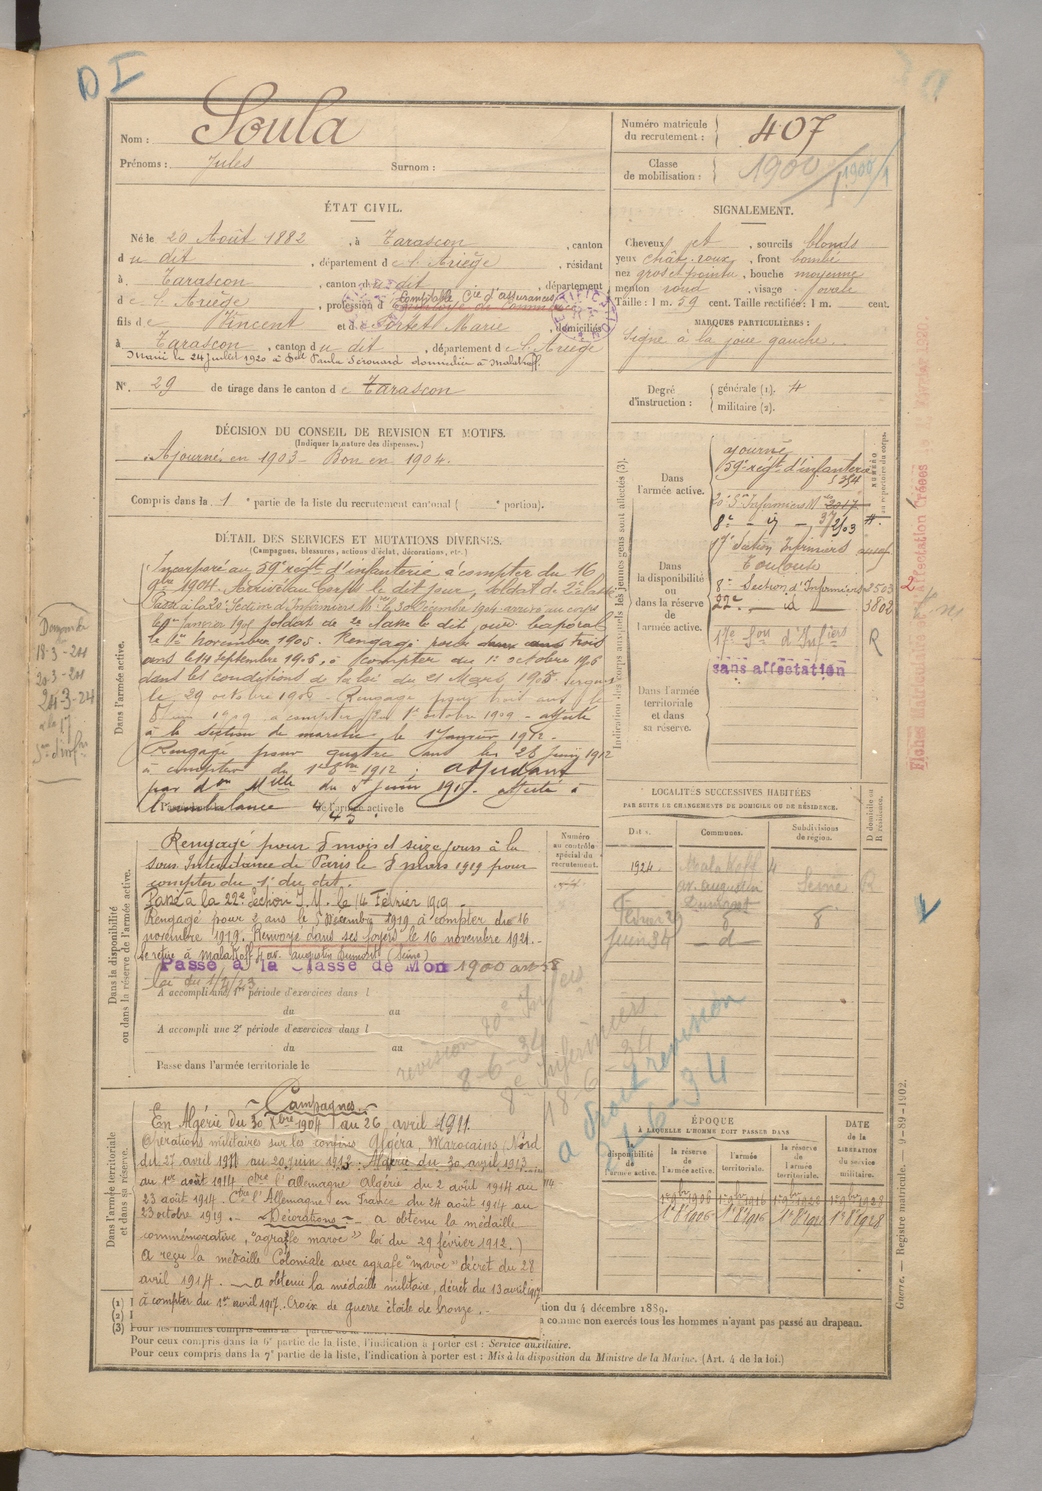 D I
Nom : Soula
Prénoms : Jules Surnom :
Numéro matricule du recrutement : 407
Classe de mobilisation : 1900
ÉTAT CIVIL.
Né le 20 Août 1882, à Tarascon, canton
du dit, département de l'Ariège, résidant
à Tarascon, canton du dit, département
de l'Ariège, profession d'Employé de Commerce Comptable Cie d'assurances
fils de Vincent et de Portet Marie, domiciliés
à Tarascon, canton du dit, département de l'Ariège
Marié le 24 juillet 1920 à Delle Paula domiciliée à Malakoff.
N° 29 de tirage dans le canton de Tarascon
SIGNALEMENT.
Cheveux et, sourcils blonds
yeux chât. roux, front bombé
nez gros et pointu, bouche moyenne
menton rond, visage ovale
Taille : 1 m. 59 cent. Taille rectifiée : 1 m. cent.
MARQUES PARTICULIÈRES :
Signe à la joue gauche.
Degré d'instruction : générale (1). 4
militaire (2).
DÉCISION DU CONSEIL DE REVISION ET MOTIFS.
(Indiquer la nature des dispenses.)
Ajourné en 1903 - Bon en 1904.
Compris dans la 1e partie de la liste du recrutement cantonal ( e portion).
DÉTAIL DES SERVICES ET MUTATIONS DIVERSES.
(Campagnes, blessures, actions d'éclat, décorations, etc.)
Dans l'armée active.
Incorporé au 59e régt d'infanterie à compter du 16
9bre 1904. Arrivé au Corps le dit jour, soldat de 2e classe
Passé à la 20e Section d'Infirmiers Mres le 30 décembre 1904 arrivé au corps
le 1er Janvier 1905 soldat de 2e classe le dit jour Caporal
le 1er Novembre 1905. Rengagé pour deux ans trois
ans le 14 Septembre 1906, à compter du 1er octobre 1906
dans les conditions de la loi du 21 Mars 1905 Sergent
le 29 octobre 1906 - Rengagé pour trois ans le
1909 à compter du 1er octobre 1909 - affecté
à la section de marche le 1 Janvier 1912.
Rengagé pour quatre ans le 26 Juin 1912
à compter du 1er 8bre 1912; adjudant
par don Mlle du 5 Juin 1915. affecté à
l'ambulance 4/45.
de l'armée active le
Indication des corps auxquels les jeunes gens sont affectés (3).
Dans l'armée active.
ajourné
59e régt d'infanterie
20e Son Infirmiers M 2017
8e - d° - 2/03
Dans la disponibilité ou dans la réserve de l'armée active.
17e Section Infirmiers
Toulouse
8e Section d'Infirmiers 2523
22e - d° 3802
17e Son d'Infiers R
sans affectation
Dans l'armée territoriale et dans sa réserve.
Dans la disponibilité ou dans la réserve de l'armée active.
Rengagé pour 8 mois et seize jours à la
sous Intendance de Paris le 8 mars 1919 pour
compter du 1er du dit.
Passé à la 22e Section I. M. le 14 Février 1919.
Rengagé pour 2 ans le 5 Décembre 1919 à compter du 16
novembre 1919. Renvoyé dans ses foyers le 16 novembre 1921.
Se retire à Malakoff 4 av. Augustin Dumont (Seine)
Passé à la Classe de Mon 1900 art 58
loi du 1/4/23
A accompli une 1re période d'exercices dans l
du au
A accompli une 2e période d'exercices dans l
du au
Passé dans l'armée territoriale le
Numéro au contrôle spécial du recrutement.
LOCALITÉS SUCCESSIVES HABITÉES
PAR SUITE DE CHANGEMENTS DE DOMICILE OU DE RÉSIDENCE.
Dates. Communes. Subdivisions de région. D domicile ou R résidence.
1924. Malakoff 4 av. Augustin Dumont Seine R
Juin 34 - d -
révision
8-6-34
8e Infirmiers
18-6-34
a droit revision
21-6-34
Dans l'armée territoriale et dans sa réserve.
Campagnes.
En Algérie du 30 Xbre 1904 au 26 avril 1911.
Opérations militaires sur les confins Algéro Marocains (Nord
du 27 avril 1911 au 20 juin 1913. Algérie du 30 avril 1913
au 1er août 1914. Ctre l'allemagne Algérie du 2 août 1914 au
23 août 1914. Ctre l'Allemagne en France du 24 août 1914 au
23 octobre 1919. - Décorations - a obtenu la médaille
commémorative, "agrafe maroc" loi du 29 février 1912.)
A reçu la médaille Coloniale avec agrafe "maroc" décret du 28
avril 1914. - a obtenu la médaille militaire, décret du 13 avril 1917
à compter du 1er avril 1917. Croix de guerre étoile de bronze.
ÉPOQUE
À LAQUELLE L'HOMME DOIT PASSER DANS
la disponibilité de l'armée active. la réserve de l'armée active. l'armée territoriale. la réserve de l'armée territoriale. DATE de la LIBÉRATION du service militaire.
1er 9bre 1906 1er 9bre 1916 1er 9bre 1928
1er 8bre 1906 1er 8bre 1916 1er 8bre 1928
(1)
(2)
(3) Pour les hommes compris dans la
tion du 4 décembre 1889.
a comme non exercés tous les hommes n'ayant pas passé au drapeau.
Pour ceux compris dans la 6e partie de la liste, l'indication à porter est : Service auxiliaire.
Pour ceux compris dans la 7e partie de la liste, l'indication à porter est : Mis à la disposition du Ministre de la Marine. (Art. 4 de la loi.)
Guerre. — Registre matricule. — 9-89-1902.
18-3-24
20-3-24
24-3-24